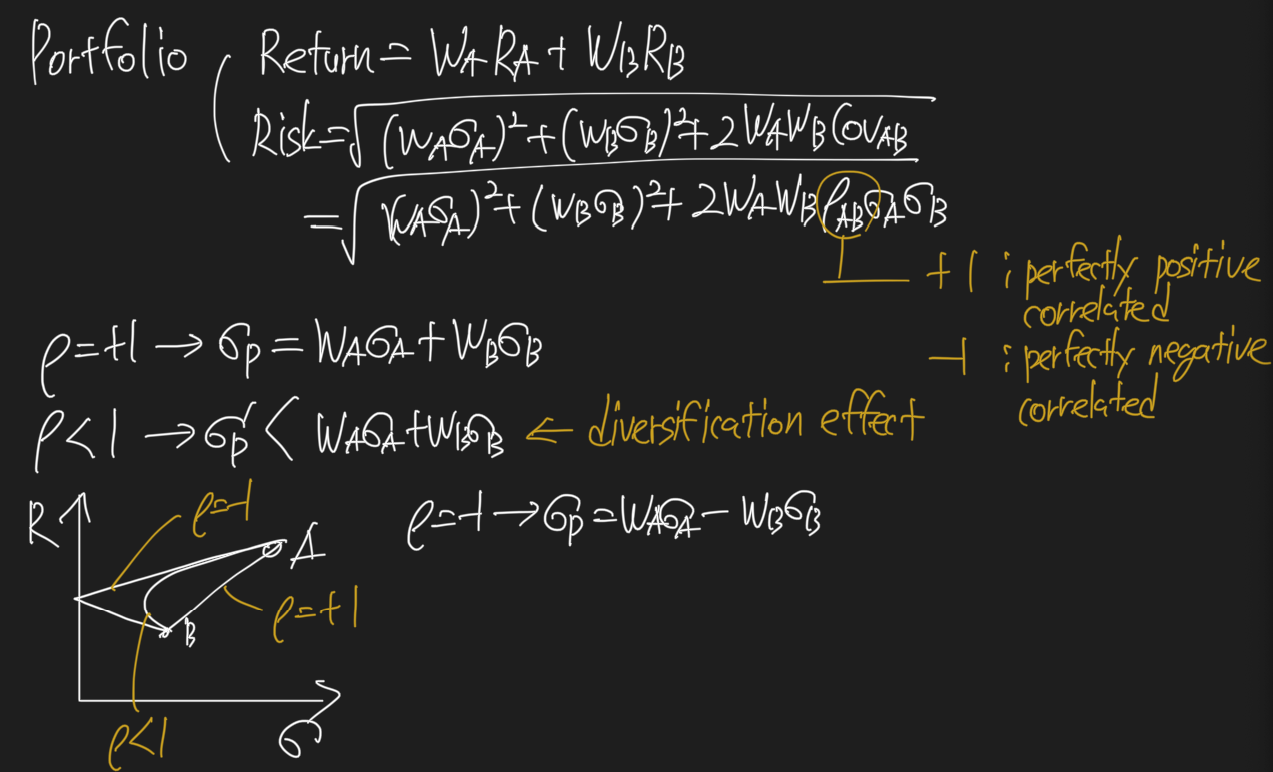 Portfolio Return = WA RA + WB RB
Risk = √(WAσA)² + (WBσB)² + 2WAWB COVAB
= √(WAσA)² + (WBσB)² + 2WAWB ρABσAσB
+1 : perfectly positive
correlated
-1 : perfectly negative
correlated
ρ=+1 → σp = WAσA + WBσB
ρ<1 → σp' < WAσA+WBσB ← diversification effect
ρ=-1 → σp = WAσA - WBσB
R
ρ=-1
A
ρ=+1
B
ρ<1
σ